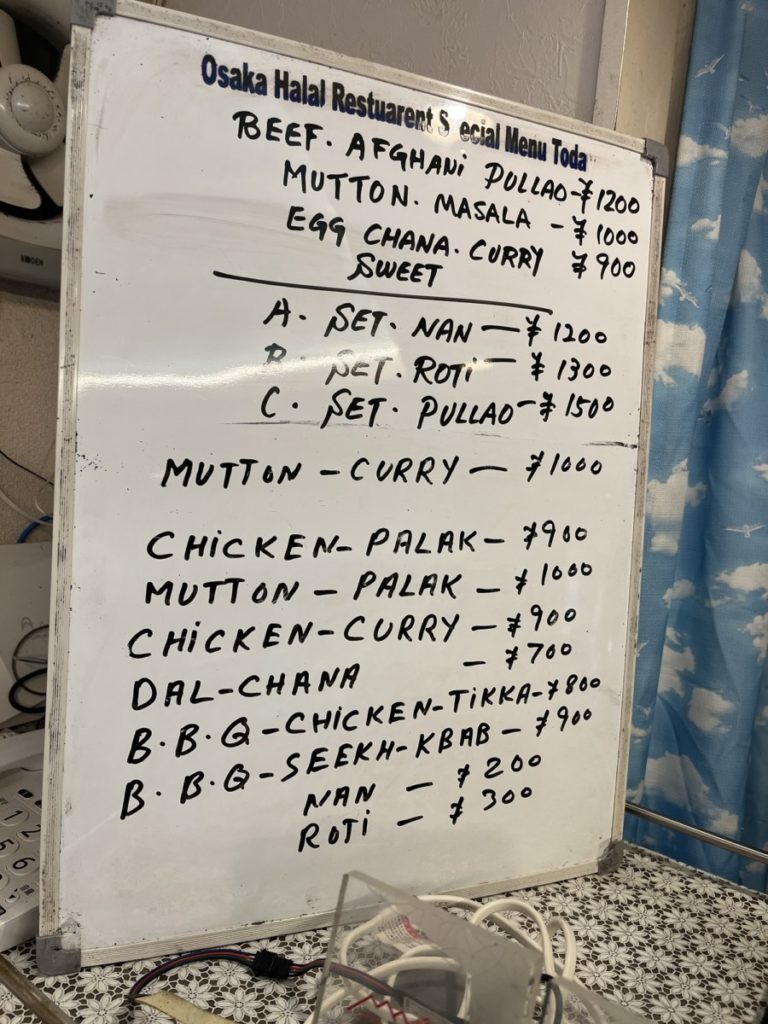 Osaka Halal Restuarent S ecial Menu Toda
BEEF. AFGHANi PULLAO-¥1200
MUTTON. MASALA - ¥1000
EGG CHANA. CURRY ¥900
SWEET
A. SET. NAN — ¥1200
B. SET. ROTi — ¥1300
C. SET. PULLAO - ¥1500
MUTTON - CURRY — ¥1000
CHiCKEN - PALAK - ¥900
MUTTON - PALAK - ¥1000
CHiCKEN - CURRY - ¥900
DAL - CHANA - ¥700
B.B.Q - CHICKEN - TIKKA - ¥800
B.B.Q - SEEKH - KBAB - ¥900
NAN - ¥200
ROTi - ¥300